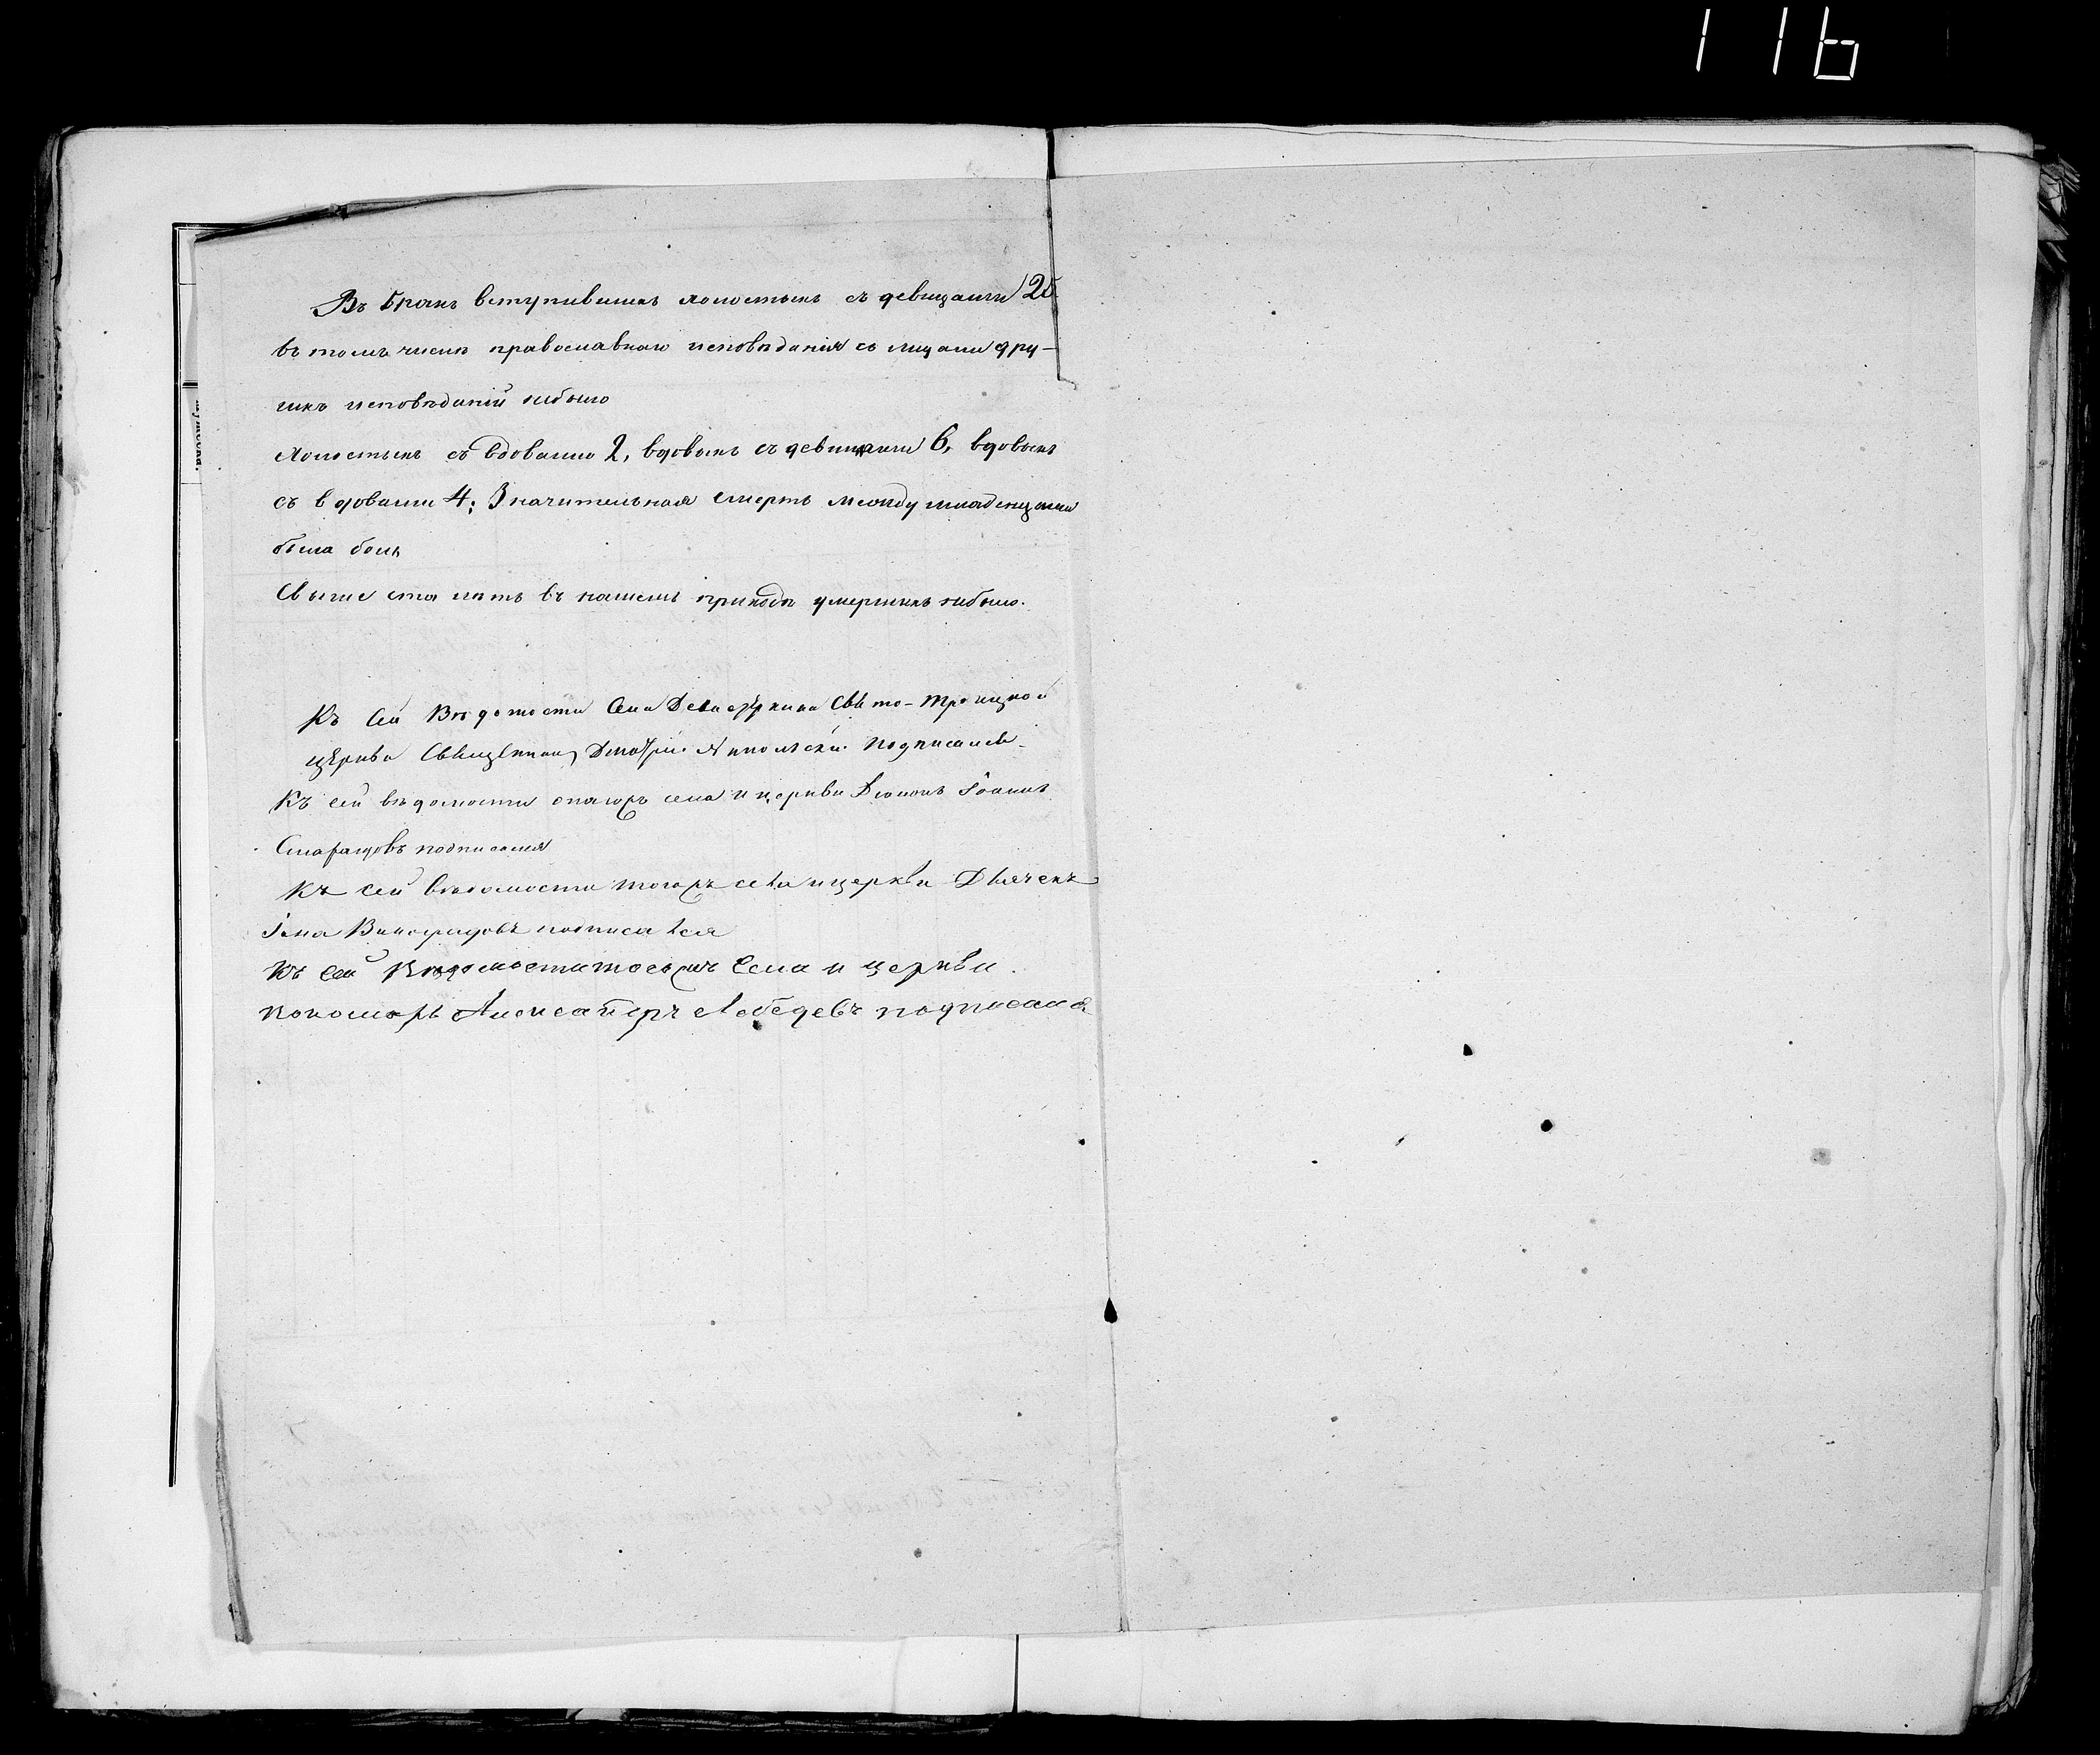 116
Въ бракъ вступившихъ холостыхъ съ девицами 25
въ томъ числѣ православнаго исповѣданія съ лицами дру-
гихъ исповѣданій небыло
холостыхъ съ вдовами 2, вдовыхъ съ девицами 6, вдовыхъ
съ вдовами 4; Значительная смерть между младенцами
была боль
Свыше ста лѣтъ въ нашемъ приходѣ умершихъ небыло.
Къ сей Вѣдомости Села Свято-Троицкой
церкви Священникъ Дмитрій Никольскій подписался
Къ сей вѣдомости онагожъ села и церкви Діаконъ Іоаннъ
Смарагдовъ подписался
Къ сей вѣдомости тогожъ села и церкви Дьячекъ
Виноградовъ подписался
Къ сей Вѣдомости тогожъ Села и церкви
пономарь Александръ Лебедевъ подписался